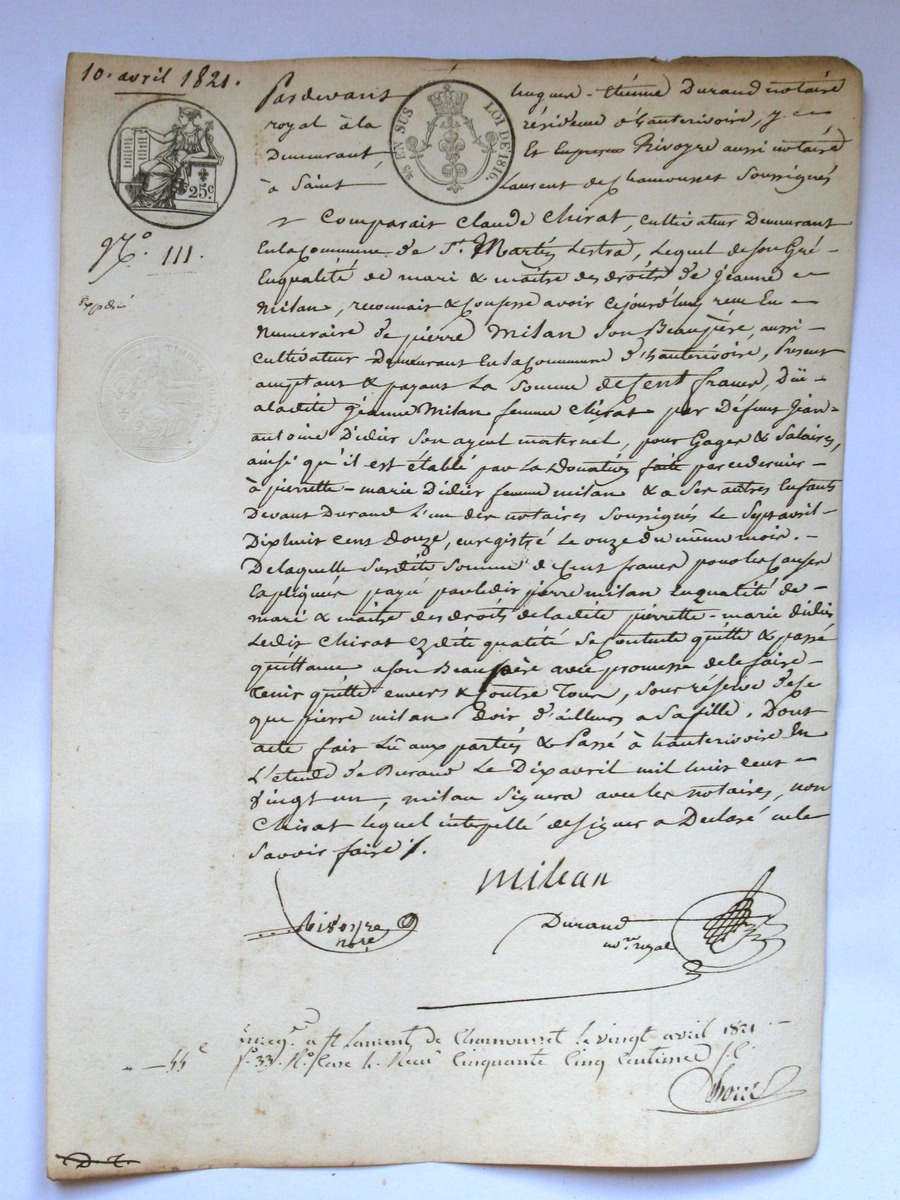 10. avril 1821.
Pardevant hugues-Etienne Durand notaire
royal à la résidence d'hauterivoire, y
Demeurant, Et Rivoyre aussi notaire
à Saint Laurent de Chamousset Soussignés
EN SUS LOI DE 1816.
25c
N.o 111.
Expédié
Comparait Claude Chirat, Cultivateur Demeurant
En la Commune de St. Martin Lestra, Lequel de son Gré
En qualité de mari & maître des droits de jeanne
Milan, reconnait & Confesse avoir cejourd'huy reçu En
Numeraire de pierre Milan son Beaupère, aussi
Cultivateur Demeurant En la Commune d'hauterivoire, Present
acceptant & payant La Somme de Cent francs, Düe
a ladite jeanne Milan femme Chirat par Défunt Jean
antoine Didier Son ayeul maternel, pour Gages & Salaires,
ainsi qu'il est établi par La Donation faite par ce dernier
à pierrette-marie Didier femme milan & a Ses autres Enfants
Devant Durand L'un des notaires Soussignés Le Sept avril
Dixhuit cent douze, enregistré Le onze du même mois.
De laquelle Susdite Somme de Cent francs pour les Causes
Expliquées payée par ledit pierre milan En qualité de
mari & maitre des droits de ladite pierrette-marie didier
Ledit Chirat Esdite qualité Se Contente quitte & passe
quittance a son Beaupère avec promesse de le faire
tenir quitte envers & Contre Tous, sous réserve de ce
que pierre milan doit d'ailleurs a Sa fille. Dont
acte fait Lû aux parties & Passé à hauterivoire En
L'étude de Durand Le Dix avril mil huit cent
Vingt un, milan Signera avec les notaires, non
Chirat Lequel interpellé de Signer a Declaré ne le
Savoir faire /.
Milan
Rivoyre
nore
Durand
nore royal
Enreg. a St Laurent de Chamousset le vingt avril 1821
fo. 33. Ro. Case 4. Recu Cinquante Cinq Centimes
55c
D. E.